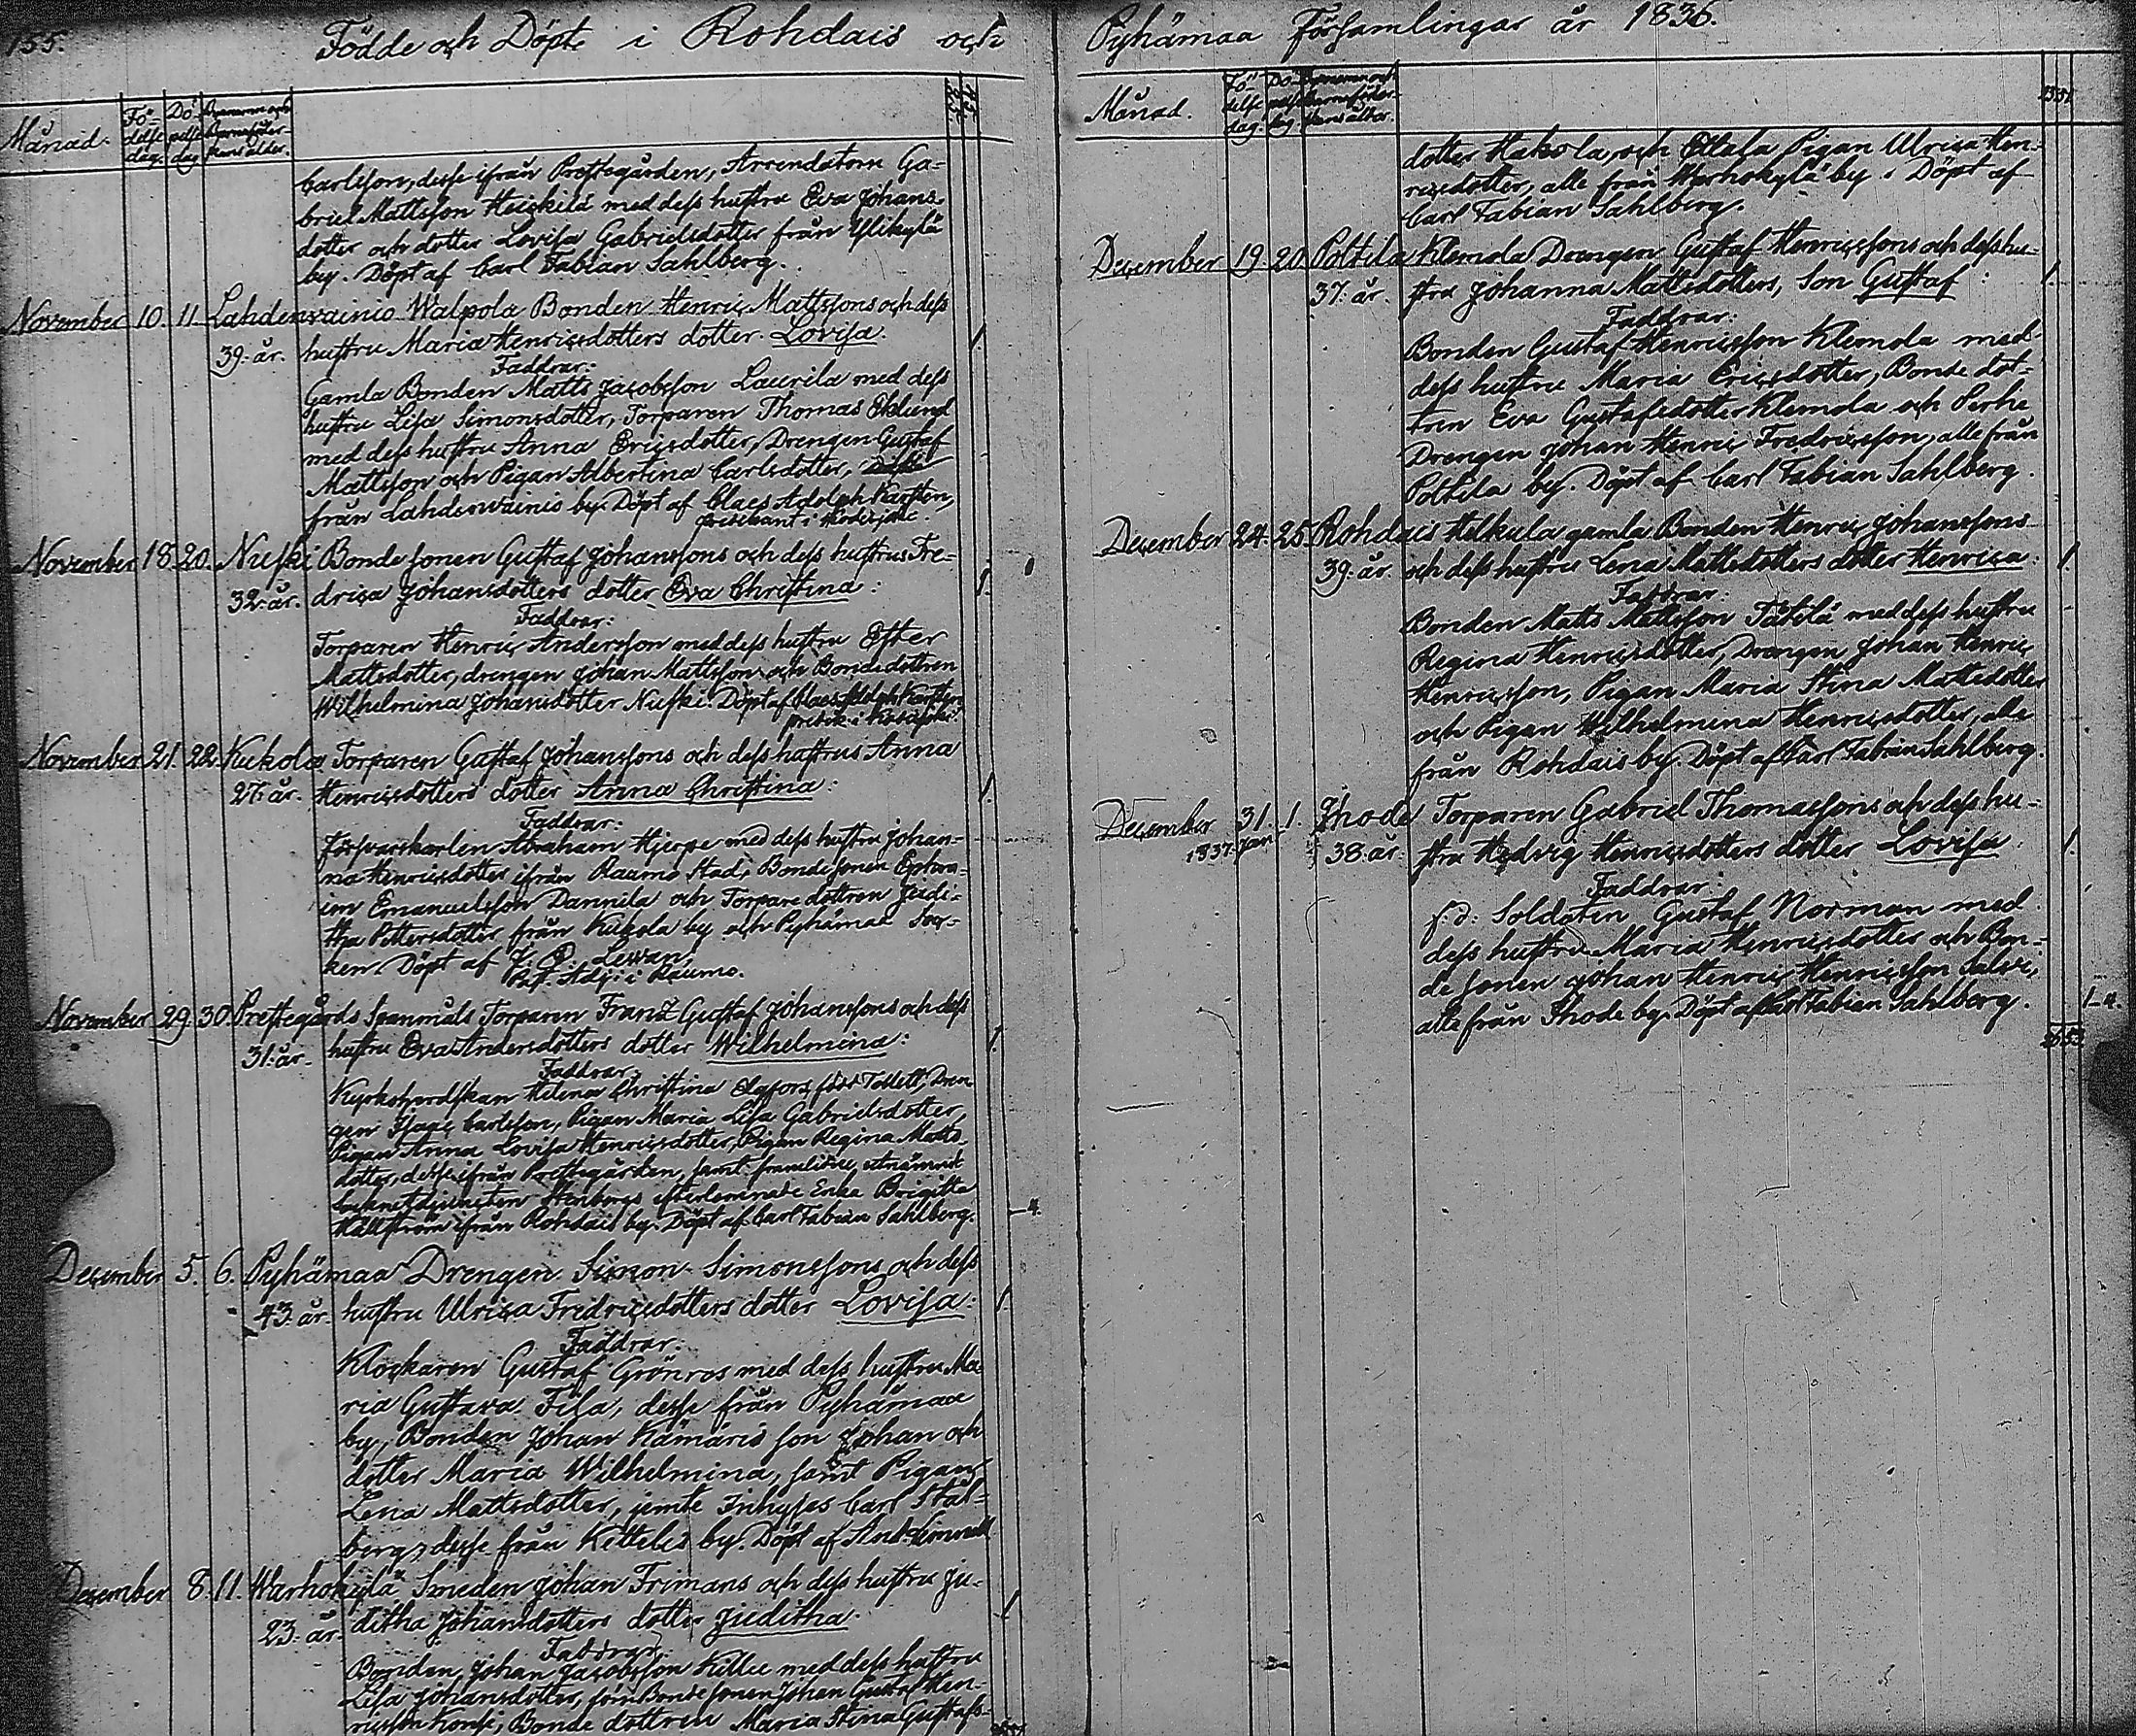 155.
Födde och Döpte i Rohdais och
Månad. Fö- Dö-
delse pelse
dag. dag hans ålder.
Carlsson, desse ifrån Prestegården, Arrendatorn Ga-
briel Mattsson Heickilä med dess hustru Eva Johans-
dotter och dotter Lovisa Gabrielsdotter från Ylikylä
by. Döpt af Carl Fabian Sahlberg.
November 10. 11. Lahdenvainio Walpola Bonden Henric Mattssons och dess
39: år. hustru Maria Henricsdotters dotter Lovisa. 1.
Faddrar:
Gamla Bonden Matts Jacobsson Laurila med dess
hustru Lisa Simonsdotter, Torparen Thomas Eklund
med dess hustru Anna Ericsdotter, Drengen Gustaf
Mattsson och Pigan Albertina Carlsdotter,
från Lahdenvainio by. Döpt af Claes Adolph Karsten,
predikant i
November 18. 20. Nuski Bonde sonen Gustaf Johanssons och dess hustrus Fre-
32: år. drica Johansdotters dotter Eva Christina: 1.
Faddrar:
Torparen Henric Andersson med dess hustru Ester
Mattsdotter, drengen Johan Mattsson och Bondedottren
Wilhelmina Johansdotter Nuski. Döpt af Claes Adolph Karsten,
predik: i
November 21. 22. Kukola Torparen Gustaf Johanssons och dess hustrus Anna
27: år. Henricsdotters dotter Anna Christina: 1.
Faddrar:
Försvarskarlen Abraham Hjerpe med dess hustru Johan-
na Henricsdotter ifrån Raumo Stad, Bonde sonen Ephra-
im Emanuelsson Dannila och Torpare dottren Judi-
tha Pettersdotter från Kukola by och Pyhämaa Soc-
ken. Döpt af Lewan,
Past. Adj: i Raumo.
November 29. 30. Prestegårds Spanmåls Torparen Franz Gustaf Johanssons och dess
31: år. hustru Eva Andersdotters dotter Wilhelmina: 1.
Faddrar:
Kyrkoherdskan Helena Christina född Tollett, Dren-
gen Isaac Carlsson, Pigan Maria Lisa Gabrielsdotter,
Pigan Anna Lovisa Henricsdotter, Pigan Regina Matts-
dotter, desse ifrån Prestegården, samt framlidne
Stenbergs efterlemnade Enka Brigitta
Källström ifrån Rohdais by. Döpt af Carl Fabian Sahlberg. — 4.
December 5. 6. Pyhämaa Drengen Simon Simonssons och dess
43: år. hustru Ulrica Fredricsdotters dotter Lovisa: 1.
Faddrar:
Klockaren Gustaf Grönros med dess hustru Ma-
ria Gustava Fisa, desse från Pyhämaa
by, Bonden Johan Kämäris son Johan och
dotter Maria Wilhelmina, samt Pigan
Lena Mattsdotter, jemte Inhyses Carl Stål-
berg, desse från Kettelis by. Döpt af And. Limnell
December 8. 11. Warhokylä Smeden Johan Frimans och dess hustru Ju-
23: år. ditha Johansdotters dotter Juditha. 1
Faddrar:
Bonden Johan Jacobsson Killu med dess hustru
Lisa Johansdotter, som Bonde sonen Johan Gustaf Hen-
ricsson Konsi, Bonde dottren Maria Stina Gustafs-
Pyhämaa Församlingar år 1836.
Månad. Fö- Dö-
delse pelse
dag. dag. hans ålder.
dotter Hakola, och Pigan Ulrica Hen-
ricsdotter, alle från Warhokylä by. Döpt af
Carl Fabian Sahlberg.
December 19. 20. Polttila Klemola Drengen Gustaf Henricssons och dess hu-
37: år. stru Johanna Mattsdotters, Son Gustaf: 1.
Faddrar:
Bonden Gustaf Henricsson Klemola med
dess hustru Maria Ericsdotter, Bonde dot-
tren Eva Gustafsdotter Klemola och Perhe
Drengen Johan Henric Fredricsson, alle från
Polttila by. Döpt af Carl Fabian Sahlberg.
December 24. 25. Rohdais Helkula gamla Bonden Henric Johanssons
39: år. och dess hustru Lena Mattsdotters dotter Henrica: 1.
Faddrar:
Bonden Matts Mattsson Tätilä med dess hustru
Regina Henricsdotter, Drengen Johan Henric
Henricsson, Pigan Maria Stina Mattsdotter
och Pigan Wilhelmina Henricsdotter, alle
från Rohdais by. Döpt af Carl Fabian Sahlberg.
December 31. 1. Ihode Torparen Gabriel Thomassons och dess hu-
1837. Jan. 38: år. stru Hedvig Henricsdotters dotter Lovisa. 1.
Faddrar:
f. d. Soldaten Gustaf Norman med
dess hustru Maria Henricsdotter och Bon-
de sonen Johan Henric Henricsson Salvi,
alle från Ihode by. Döpt af Carl Fabian Sahlberg. 1-4.